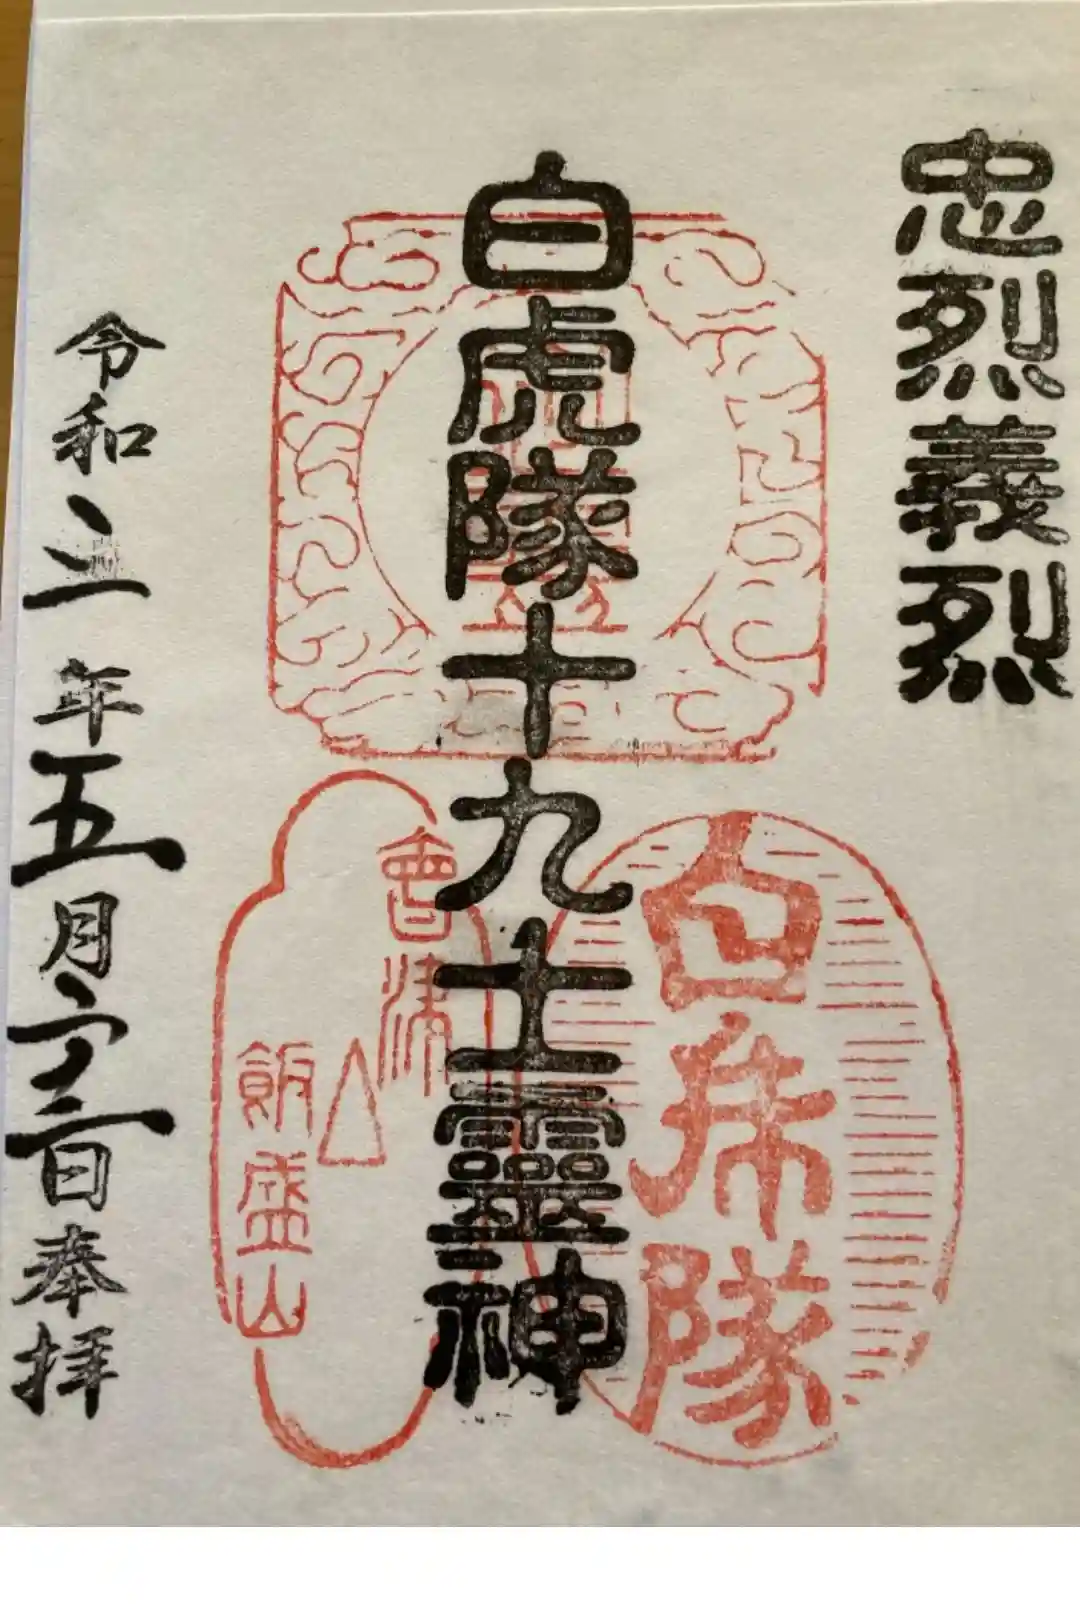 忠烈義烈
白虎隊十九士靈神
白乕隊
會津
飯盛山
令和 年五月 日奉拝